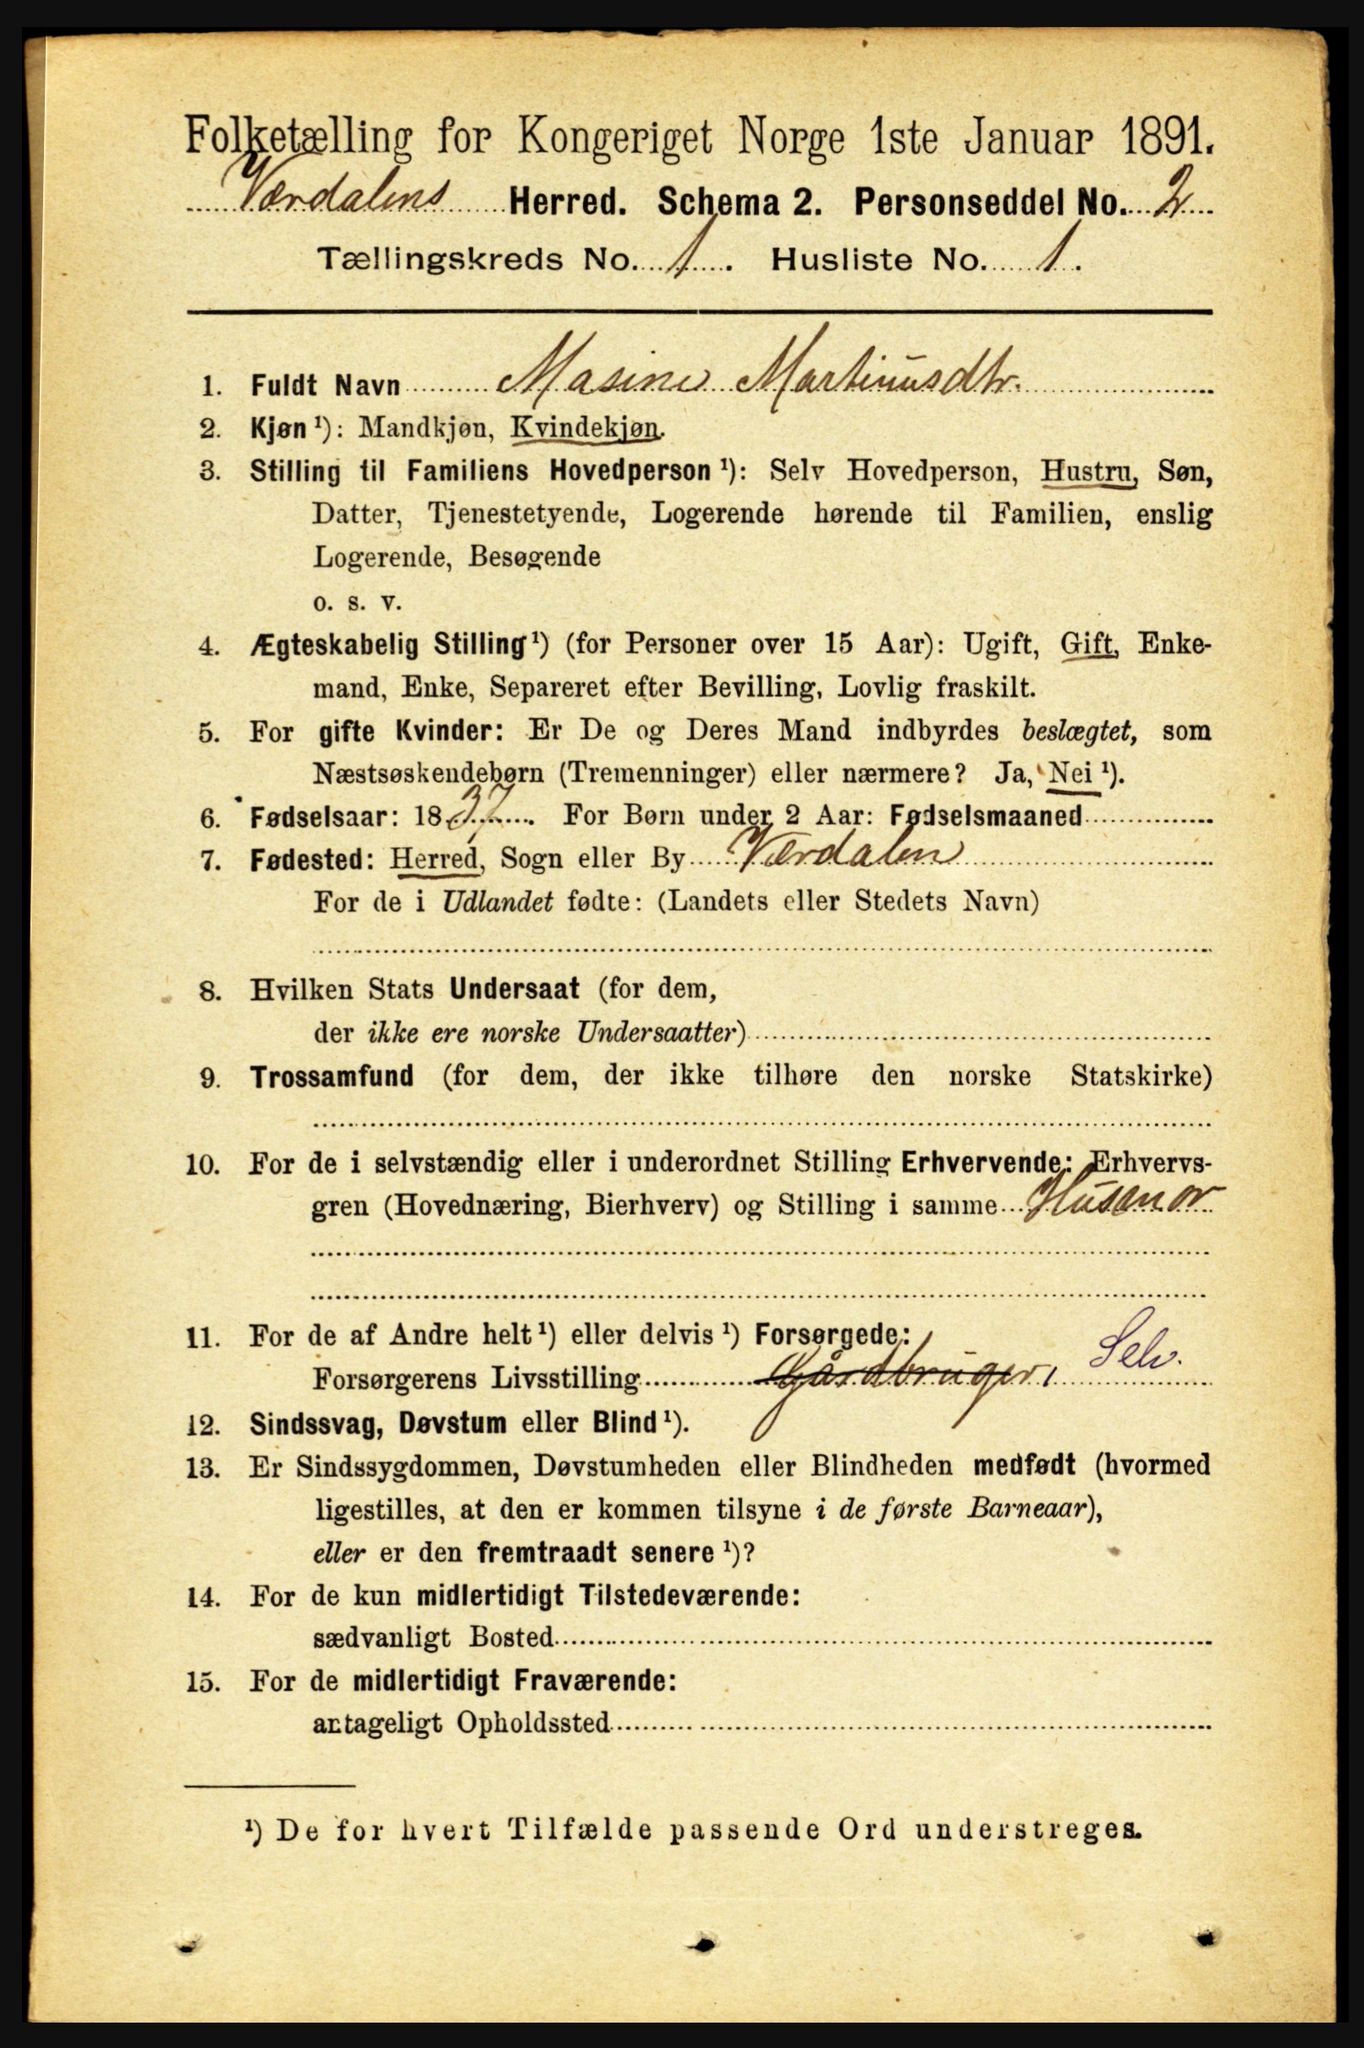 Folketælling for Kongeriget Norge 1ste Januar 1891.
Værdalens Herred. Schema 2. Personseddel No. 2
Tællingskreds No. 1. Husliste No. 1.
1. Fuldt Navn Masine Martinusdtr.
2. Kjøn ¹): Mandkjøn, Kvindekjøn.
3. Stilling til Familiens Hovedperson ¹): Selv Hovedperson, Hustru, Søn,
Datter, Tjenestetyende, Logerende hørende til Familien, enslig
Logerende, Besøgende
o. s. v.
4. Ægteskabelig Stilling ¹) (for Personer over 15 Aar): Ugift, Gift, Enke-
mand, Enke, Separeret efter Bevilling, Lovlig fraskilt.
5. For gifte Kvinder: Er De og Deres Mand indbyrdes beslægtet, som
Næstsøskendebørn (Tremenninger) eller nærmere? Ja, Nei ¹).
6. Fødselsaar: 1837. For Børn under 2 Aar: Fødselsmaaned
7. Fødested: Herred, Sogn eller By Værdalen
For de i Udlandet fødte: (Landets eller Stedets Navn)
8. Hvilken Stats Undersaat (for dem,
der ikke ere norske Undersaatter)
9. Trossamfund (for dem, der ikke tilhøre den norske Statskirke)
10. For de i selvstændig eller i underordnet Stilling Erhvervende: Erhvervs-
gren (Hovednæring, Bierhverv) og Stilling i samme Husmor
11. For de af Andre helt ¹) eller delvis ¹) Forsørgede:
Forsørgerens Livsstilling Gårdbruger, Selv.
12. Sindssvag, Døvstum eller Blind ¹).
13. Er Sindssygdommen, Døvstumheden eller Blindheden medfødt (hvormed
ligestilles, at den er kommen tilsyne i de første Barneaar),
eller er den fremtraadt senere ¹)?
14. For de kun midlertidigt Tilstedeværende:
sædvanligt Bosted
15. For de midlertidigt Fraværende:
antageligt Opholdssted
¹) De for hvert Tilfælde passende Ord understreges.